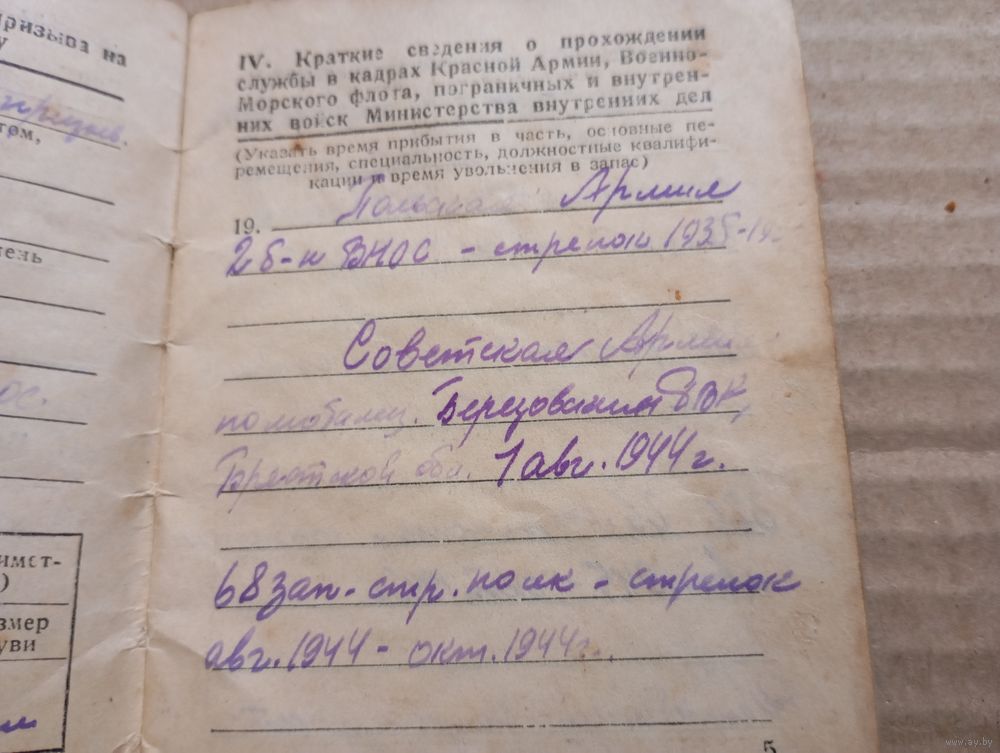 призыва на
у
том,
IV. Краткие сведения о прохождении
службы в кадрах Красной Армии, Военно-
Морского флота, пограничных и внутрен-
них войск Министерства внутренних дел
(Указать время прибытия в часть, основные пе-
ремещения, специальность, должностные квалифи-
кации и время увольнения в запас)
19. Польская Армия
2 б-н ВНОС - стрелок 1935-19
Советская Армия
по мобилиз. Березовским РВК,
Брестской обл. 1 авг. 1944 г.
68 зап. стр. полк - стрелок
авг. 1944 - окт. 1944 г.
5
ень
ос.
имет-
)
змер
уви
www.ay.by